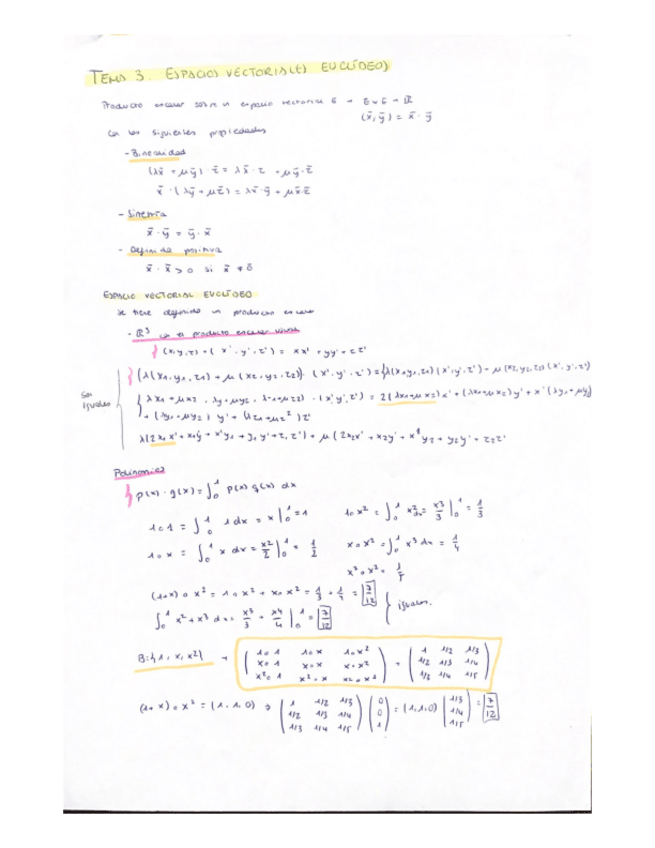 TEMA 3. ESPACIOS VECTORIALES EUCLÍDEOS
Producto escalar sobre un espacio vectorial E → E x E → R
(x̄, ȳ) = x̄ · ȳ
Con las siguientes propiedades
- Bilinealidad
(λx̄ + μȳ) · z̄ = λx̄ · z + μȳ · z̄
x̄ · (λȳ + μz̄) = λx̄ · ȳ + μx̄ · z̄
- Simetría
x̄ · ȳ = ȳ · x̄
- Definida positiva
x̄ · x̄ > 0 si x̄ ≠ 0̄
ESPACIO VECTORIAL EUCLÍDEO
Se tiene definido un producto escalar
- R³ con el producto escalar usual
(x, y, z) · (x', y', z') = xx' + yy' + zz'
Son iguales
(λ(x1, y1, z1) + μ(x2, y2, z2)) · (x', y', z') = λ(x1, y1, z1)(x', y', z') + μ(x2, y2, z2)(x', y', z')
(λx1 + μx2, λy1 + μy2, λz1 + μz2) · (x', y', z') = 2(λx1 + μx2)x' + (λx1 + μx2)y' + x'(λy1 + μy2)
+ (λy1 + μy2)y' + (λz1 + μz2)z'
λ(2x1x' + x1y' + x'y1 + y1y' + z1z') + μ(2x2x' + x2y' + x'y2 + y2y' + z2z'
Polinomios
p(x) · q(x) = ∫₀¹ p(x) q(x) dx
1∘1 = ∫₀¹ 1dx = x |₀¹ = 1 1∘x² = ∫₀¹ x²dx = x³/3 |₀¹ = 1/3
1∘x = ∫₀¹ x dx = x²/2 |₀¹ = 1/2 x∘x² = ∫₀¹ x³dx = 1/4
x²∘x² = 1/5
(1+x)∘x² = 1∘x² + x∘x² = 1/3 + 1/4 = 7/12
∫₀¹ x² + x³ dx = x³/3 + x⁴/4 |₀¹ = 7/12 iguales.
B: {1, x, x²} → ( 1∘1 1∘x 1∘x² ) → ( 1 1/2 1/3 )
( x∘1 x∘x x∘x² ) ( 1/2 1/3 1/4 )
( x²∘1 x²∘x x²∘x² ) ( 1/3 1/4 1/5 )
(1+x)∘x² = (1, 1, 0) → ( 1 1/2 1/3 ) ( 0 ) = (1, 1, 0) ( 1/3 ) = 7/12
( 1/2 1/3 1/4 ) ( 0 ) ( 1/4 )
( 1/3 1/4 1/5 ) ( 1 ) ( 1/5 )